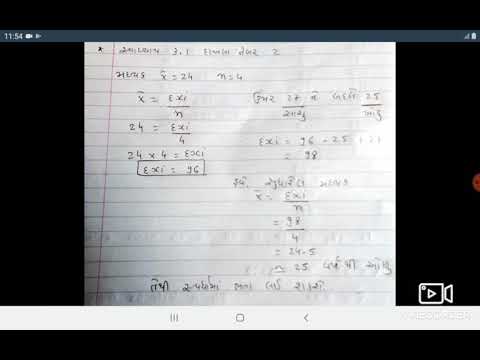 11:54
* સ્વાધ્યાય 3.1 દાખલા નંબર 2
મધ્યક x̄ = 24 n = 4
x̄ = Σxi / n
24 = Σxi / 4
24 x 4 = Σxi
Σxi = 96
ઉંમર 27 ને બદલે 25
સાચુ
Σxi = 96 - 25 + 27
= 98
હવે, સુધારેલ મધ્યક
x̄ = Σxi / n
= 98 / 4
= 24.5
≈ 25 વર્ષથી ઓછુ
તેથી સ્પર્ધામાં ભાગ લઈ શકશે.